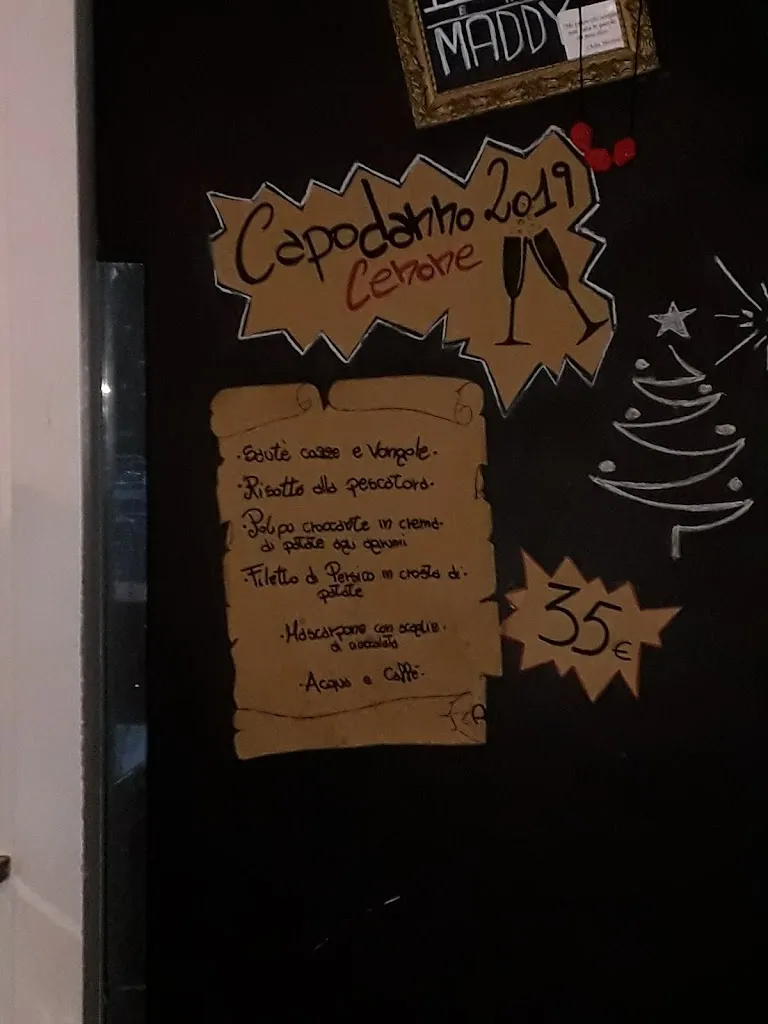 E
MADDY
Capodanno 2019
Cenone
·Sautè cozze e Vongole·
·Risotto alla pescatora·
·Polpo croccante in crema·
di patate agli agrumi
·Filetto di Persico in crosta di·
patate
·Mascarpone con scaglie·
di cioccolato
·Acqua e Caffè·
35€